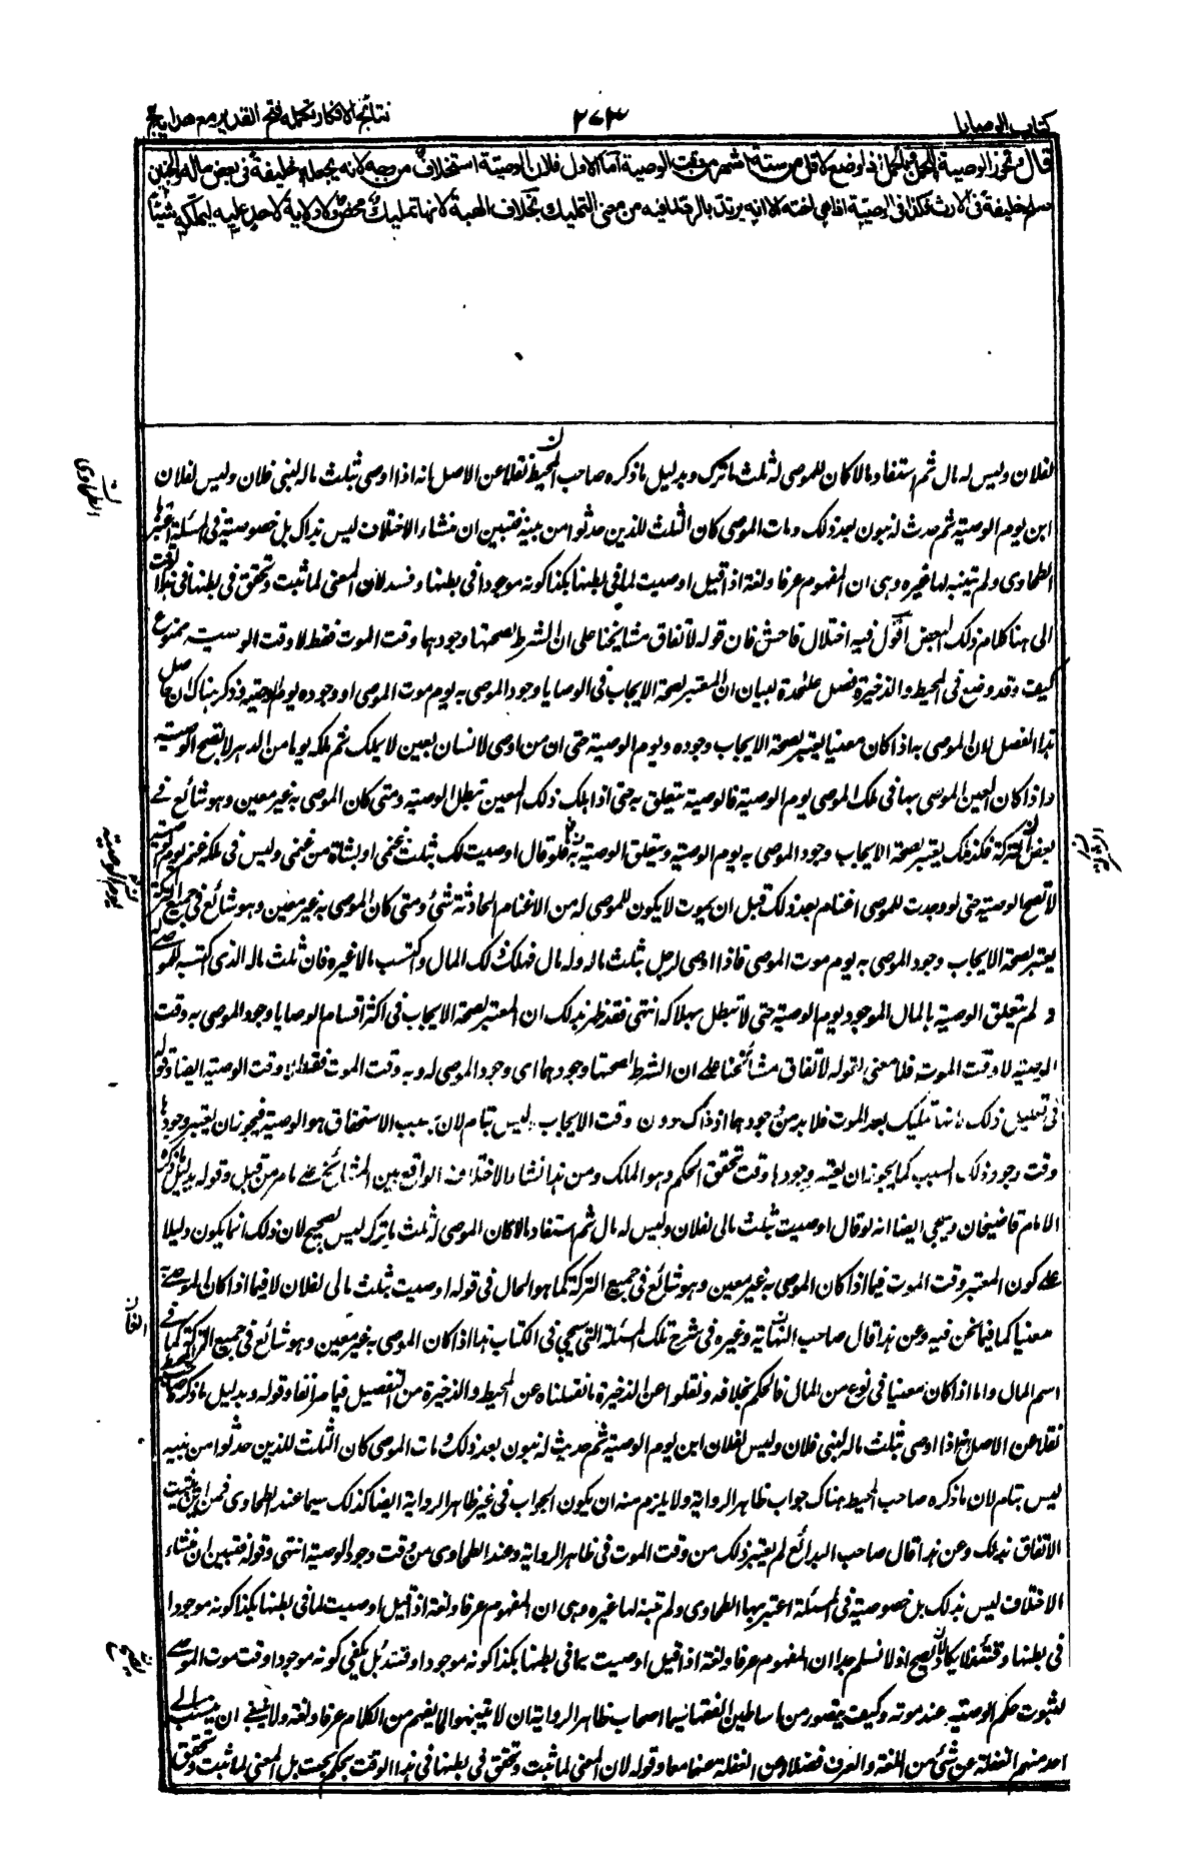 كتاب الوصايا
٢٧٣
نتائج الافكار تكملہ فتح القدير مع هدايہ ج
قال وتجوز الوصية للحمل وبالحمل اذا وضع لاقل من ستة اشهر من وقت الوصية اما الاول فلان الوصية استخلاف من وجه لانه يجعله خليفة في بعض ماله والجنين
صلح خليفة في الارث فكذا في الوصية اذ هي اخته الا انه يرتد بالرد لما فيه من معنى التمليك بخلاف الهبة لانها تمليك محض ولا ولاية لاحد عليه ليملكه شيئا
لفلان وليس له مال ثم استفاد مالا كان للموصى له ثلث ما ترك وبدليل ما ذكره صاحب المحيط نقلا عن الاصل انه اذا اوصى بثلث ماله لبنى فلان وليس لفلان
ابن يوم الوصية ثم حدث له بنون بعد ذلك ومات الموصى كان الثلث للذين حدثوا من بنيه فتبين ان منشاء الاختلاف ليس بذاك بل خصوصية فى المسئلة اعتبرها
الطحاوى ولم يتنبه لها غيره وهى ان المفهوم عرفا ولغة اذا قيل اوصيت لما فى بطنها بكذا كونه موجودا فى بطنها وفسد لان المعنى لما ثبت وتحقق فى بطنها فى هذا الوقت
الى هنا كلام ذلك البعض اقول فيه اختلال فاحش فان قوله لاتفاق مشايخنا على ان الشرط لصحتها وجودهما وقت الموت فقط لا وقت الوصية ممنوع
كيف وقد وضع فى المحيط والذخيرة فصل على حدة لبيان ان المعتبر لصحة الايجاب فى الوصايا وجود الموصى به يوم موت الموصى او وجوده يوم الوصية وذكر هناك ان حاصل
هذا الفصل ان الموصى به اذا كان معينا يعتبر لصحة الايجاب وجوده ويوم الوصية حتى ان من اوصى لانسان بعين لا يملك ثم ملكه يوما من الدهر لا تصح الوصية
واذا كان العين الموصى بها فى ملك الموصى يوم الوصية فالوصية تتعلق به حتى اذا هلك ذلك العين تبطل الوصية ومتى كان الموصى به غير معين وهو شائع فے
بعض التركة فكذلك يعتبر لصحة الايجاب وجود الموصى به يوم الوصية وتتعلق الوصية به فلو قال اوصيت لك بثلث غنمى او بشاة من غنمى وليس فى ملكه غنم يوم الوصية
لا تصح الوصية حتى لو وجدت للموصى اغنام بعد ذلك قبل ان يموت لا يكون للموصى له من الاغنام الحادثة شئ ومتى كان الموصى به غير معين وهو شائع فى جميع التركة
يعتبر لصحة الايجاب وجود الموصى به يوم موت الموصى فاذا اوصى لرجل بثلث ماله وله مال فهلك ذلك المال واكتسب مالا غيره فان ثلث ماله الذى اكتسبه للموصى له
و لم يتعلق الوصية بالمال الموجود يوم الوصية حتى لا تبطل بهلاكه انتهى فقد ظهر بذلك ان المعتبر لصحة الايجاب فى اكثر اقسام الوصايا وجود الموصى به وقت
الوصية لا وقت الموت فلا معنى لقوله لاتفاق مشائخنا علے ان الشرط لصحتها وجودهما اى وجود الموصى له وبه وقت الموت فقط لا وقت الوصية ايضا وقوله
فى تعليل ذلك لانها تمليك بعد الموت فلا بد من وجودهما اذ ذاك دون وقت الايجاب ليس بتام لان سبب الاستحقاق هو الوصية فيجوز ان يعتبر وجودها
وقت وجود ذلك السبب كما يجوز ان يعتبر وجودها وقت تحقق الحكم وهو الملك ومن هذا نشاء الاختلاف الواقع بين المشائخ علے ما مر من قبل وقوله بدليل ما ذكره
الامام قاضيخان ويجى ايضا انه لو قال اوصيت بثلث مالى لفلان وليس له مال ثم استفاد مالا كان الموصى له ثلث ما يترك ليس بصحيح لان ذلك انما يكون دليلا
علے كون المعتبر وقت الموت فيما اذا كان الموصى به غير معين وهو شائع فى جميع التركة كما هو الحال فى قوله اوصيت بثلث مالى لفلان لا فيما اذا كان الموصى به
معينا كما فيما نحن فيه وعن هذا قال صاحب النهاية وغيره فى شرح تلك المسئلة التى سيجى فى الكتاب هذا اذا كان الموصى به غير معين وهو شائع فى جميع التركة كما فے
اسم المال واما اذا كان معينا فى نوع من المال فالحكم بخلافه ونقلوا عن الذخيرة ما نقلناه عن المحيط والذخيرة من التفصيل فيما مر آنفا وقوله وبدليل ما ذكره صاحب المحيط
نقلا عن الاصل انه اذا اوصى بثلث ماله لبنى فلان وليس لفلان ابن يوم الوصية ثم حدث له بنون بعد ذلك ومات الموصى كان الثلث للذين حدثوا من بنيه
ليس بتام لان ما ذكره صاحب المحيط هناك جواب ظاهر الرواية ولا يلزم منه ان يكون الجواب فى غير ظاهر الرواية ايضا كذلك سيما عند الطحاوى فمن اين يثبت
الاتفاق بذلك وعن هذا قال صاحب البدائع لم يعتبر ذلك من وقت الموت فى ظاهر الرواية وعند الطحاوى من وقت وجود الوصية انتهى وقوله فتبين ان منشاء
الاختلاف ليس بذلك بل خصوصية فى المسئلة اعتبر بها الطحاوى ولم يتنبه لها غيره وهى ان المفهوم عرفا ولغة اذا قيل اوصيت لما فى بطنها بكذا كونه موجودا
فى بطنها وقتئذ لا يكاد يصح اذ لا نسلم جدا ان المفهوم عرفا ولغة اذا قيل اوصيت بما فى بطنها بكذا كونه موجودا وقتئذ بل يكفى كونه موجودا وقت موت الموصے
لثبوت حكم الوصية عند موته وكيف يتصور من اساطين الفقهاء سيما اصحاب ظاهر الرواية ان لا يتنبهوا لما يفهم من الكلام عرفا ولغة ولا ينبغے ان ينسب الے
احد منهم الغفلة عن شئ من اللغة والعرف فضلا عن الغفلة عنهما معا وقوله لان المعنى لما ثبت وتحقق فى بطنها فى هذا الوقت تحكم بحت بل المعنى لما ثبت وتحقق